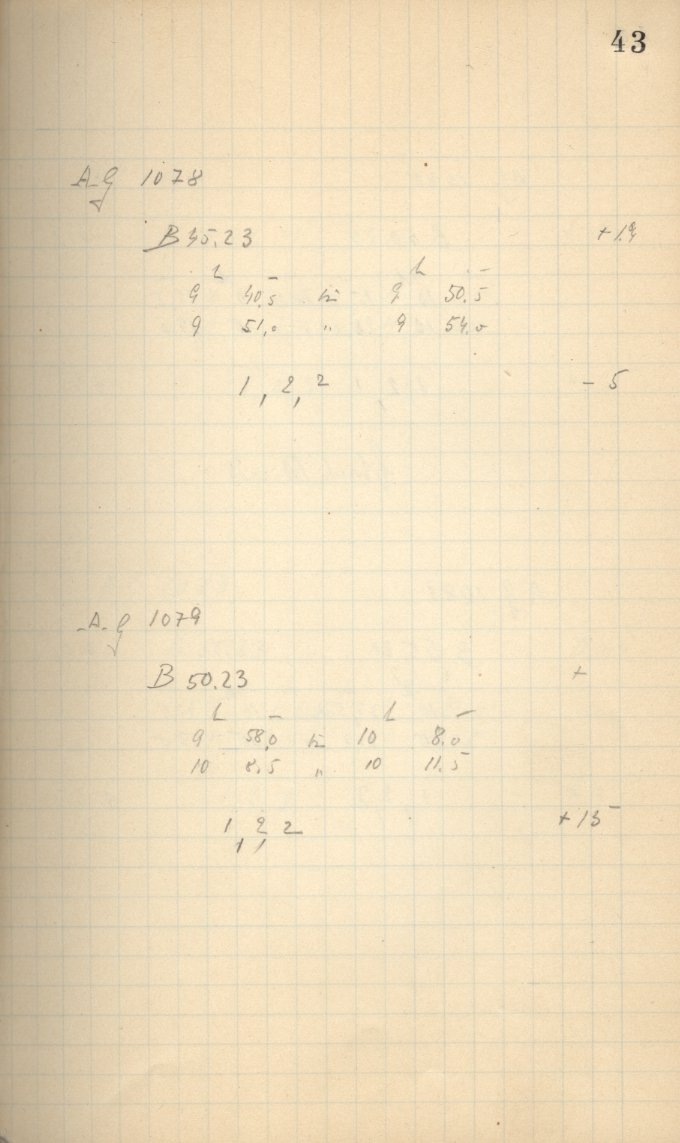 43
AG 1078
B 45.23 +14
h m h m
9 40,5 bis 9 50.5
9 51,0 " 9 54.0
1, 2, 2 - 5
A.G 1079
B 50.23 +
h m h m
9 58,0 bis 10 8.0
10 8.5 " 10 11.5
1, 2, 2 + 15